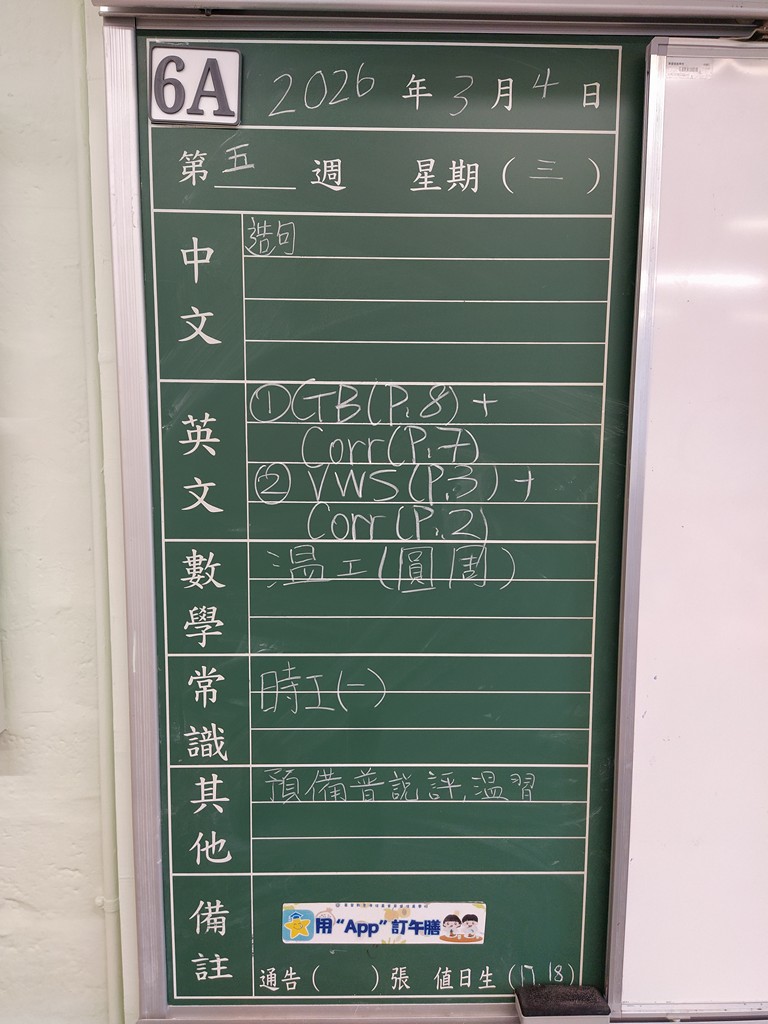 6A 2026 年 3 月 4 日
第 五 週 星期 ( 三 )
中文
造句
英文
① GB (P.8) +
Corr (P.7)
② VWS (P.3) +
Corr (P.2)
數學
溫工 (圓周)
常識
時工 (一)
其他
預備普說評, 溫習
備註
用 “App” 訂午膳
通告 ( ) 張 值日生 (17 18)